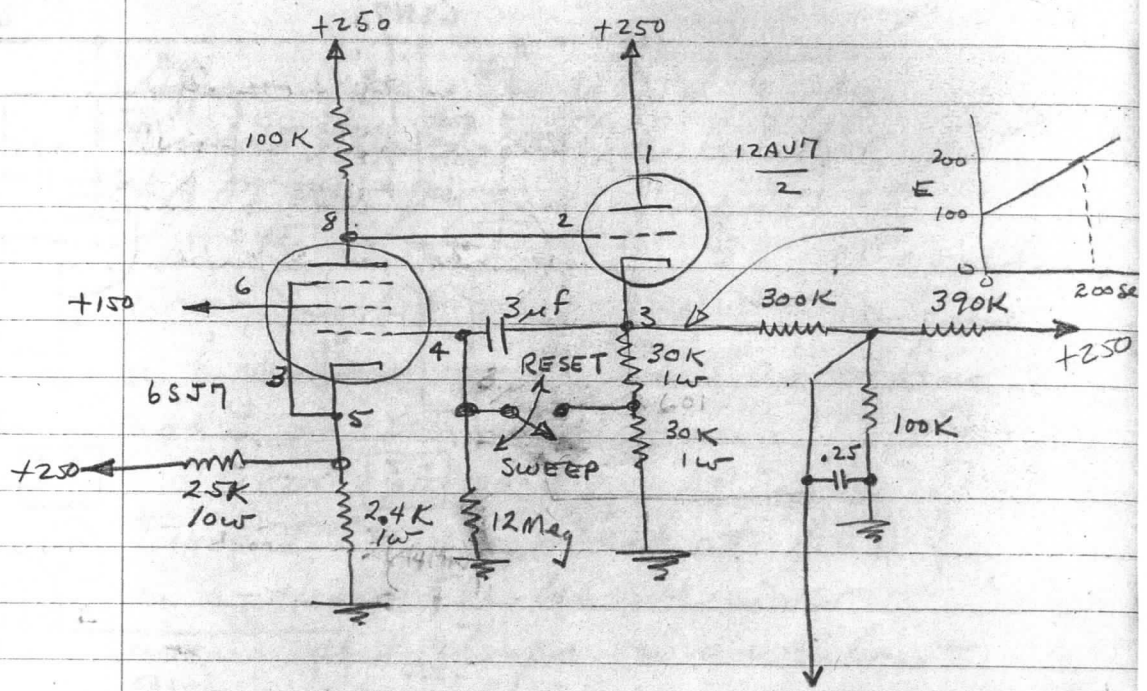 +250
+250
100K
1
12AU7
2
200
E
100
0
0
200 se
8
2
6
+150
3 μf
3
300K
390K
+250
4
RESET
30K
1W
3
6SJ7
5
SWEEP
30K
1W
100K
.25
+250
25K
10W
2.4K
1W
12 Meg